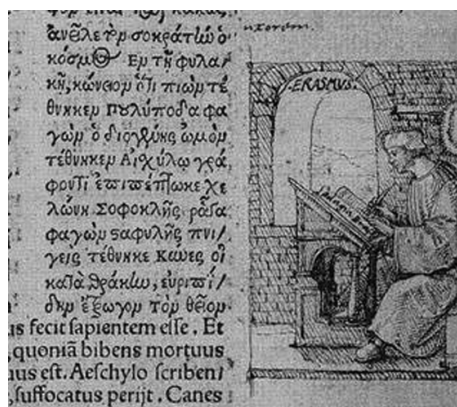 ἀνεῖλε τὸν σοκράτην ὁ
κόσμος Εν τῇ φυλα/
κῇ, κώνειον ὅτι πιὼν τέ
θνηκεν Πουλύποδα φα
γὼν ὁ διογένης ὠμὸν
τέθνηκεν Αἰχύλῳ γρά
φοντι ἐπιπέπτωκε χε
λώνη Σοφοκλῆς ῥᾶγα
φαγὼν σταφυλῆς πνι/
γεὶς τέθνηκε Κύνες οἱ
κατὰ θράκην, εὐριπί/
δην ἔτρωγον τὸν θεῖον
us fecit sapientem esse. Et
quoniā bibens mortuus
uus est. Aeschylo scriben/
suffocatus perijt. Canes
ERASMVS.